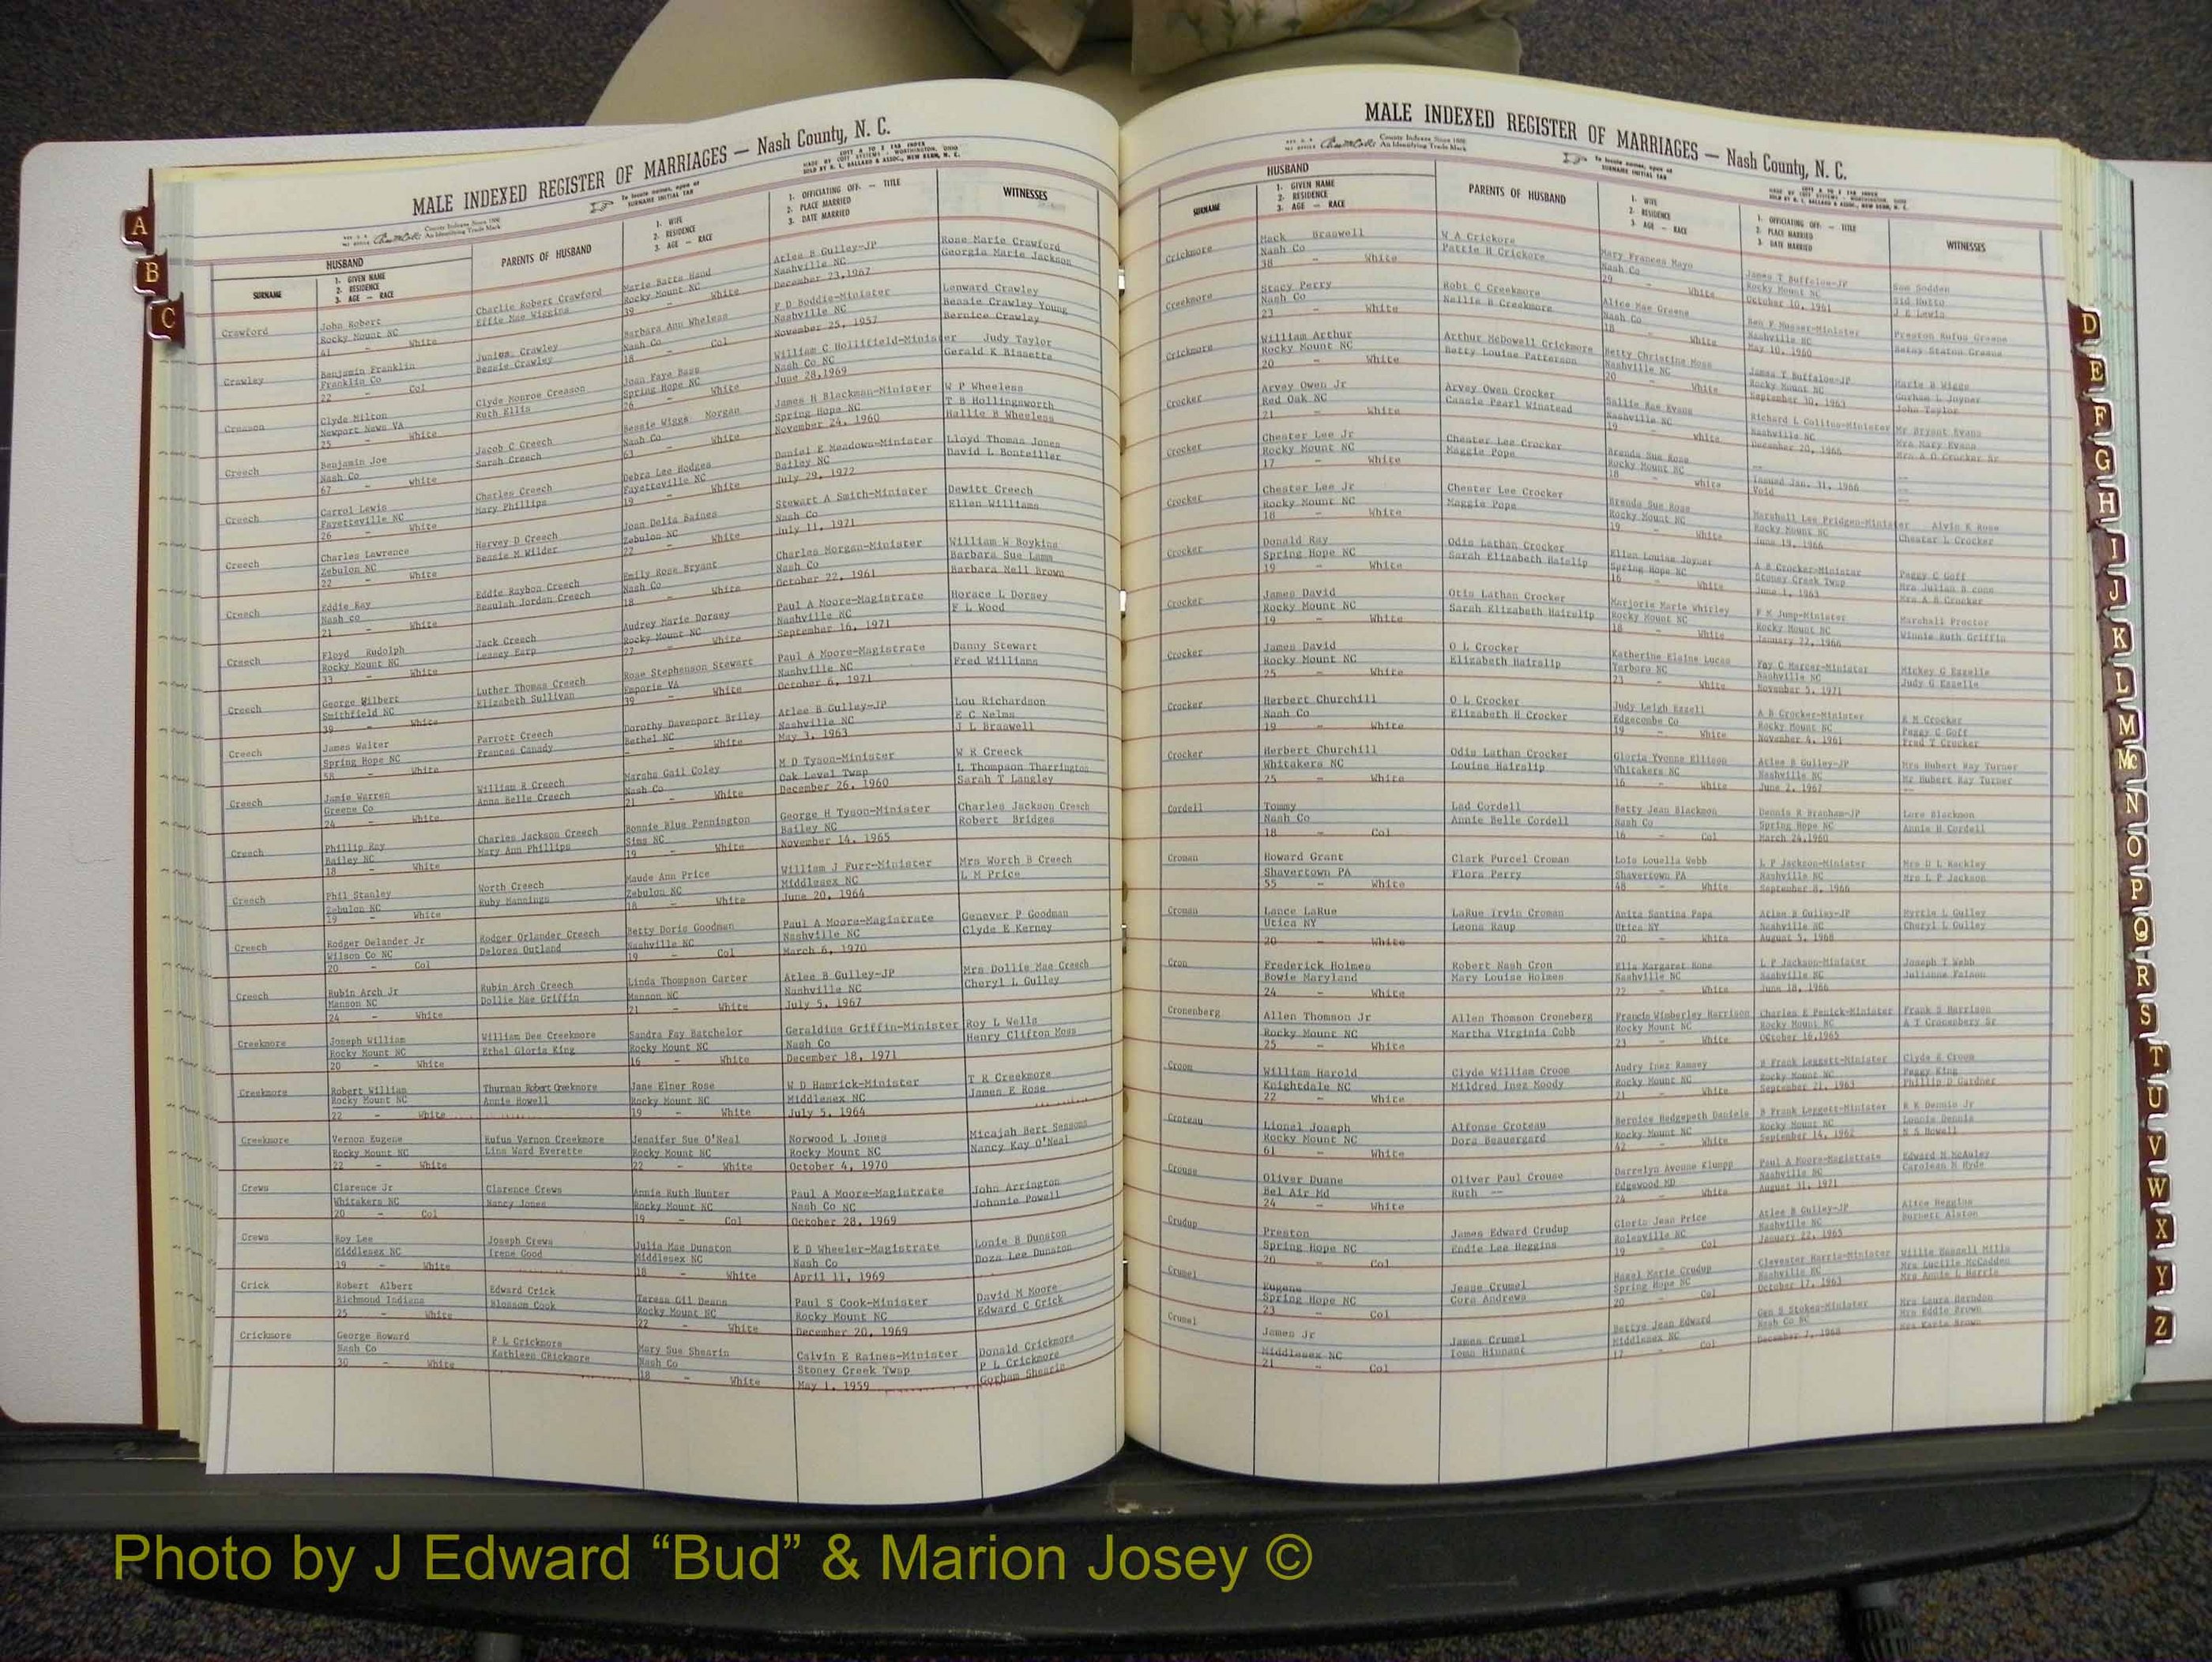 MALE INDEXED REGISTER OF MARRIAGES — Nash County, N. C.
County Indexes Since 1888
An Identifying Trade Mark
To locate names, open at
SURNAME INITIAL TAB
HUSBAND
SURNAME
1. GIVEN NAME
2. RESIDENCE
3. AGE — RACE
PARENTS OF HUSBAND
1. WIFE
2. RESIDENCE
3. AGE — RACE
1. OFFICIATING OFF. — TITLE
2. PLACE MARRIED
3. DATE MARRIED
WITNESSES
Crawford John Robert Charlie Robert Crawford Marie Batts Hand Atlee B Gulley-JP Rose Marie Crawford
Rocky Mount NC Effie Mae Wiggins Rocky Mount NC Nashville NC Georgia Marie Jackson
41 - White 39 - White December 23,1967
Crawley Benjamin Franklin Junious Crawley Barbara Ann Wheless F D Boddie-Minister Lenward Crawley
Franklin Co Bessie Crawley Nash Co Nashville NC Bessie Crawley Young
22 - Col 18 - Col November 25, 1957 Bernice Crawley
Creason Clyde Milton Clyde Monroe Creason Joan Faye Bass William C Hollifield-Minister Judy Taylor
Newport News VA Ruth Ellis Spring Hope NC Nash Co NC Gerald K Bissette
25 - White 26 - White June 28,1969
Creech Benjamin Joe Jacob C Creech Bessie Wiggs Morgan James H Blackman-Minister W P Wheeless
Nash Co Sarah Creech Nash Co Spring Hope NC T B Hollingsworth
67 - white 63 - White November 24, 1960 Hallie B Wheeless
Creech Carrol Lewis Charles Creech Debra Lee Hodges Daniel E Meadows-Minister Lloyd Thomas Jones
Fayetteville NC Mary Phillips Fayetteville NC Bailey NC David L Bonteiller
26 - White 19 - White July 29, 1972
Creech Charles Lawrence Harvey D Creech Joan Delia Baines Stewart A Smith-Minister Dewitt Creech
Zebulon NC Bessie M Wilder Zebulon NC Nash Co Ellen Williams
22 - White 22 - White July 11, 1971
Creech Eddie Ray Eddie Raybon Creech Emily Rose Bryant Charles Morgan-Minister William W Boykins
Nash co Beaulah Jordan Creech Nash Co Nash Co Barbara Sue Lamm
21 - White 18 - White October 22, 1961 Barbara Nell Brown
Creech Floyd Rudolph Jack Creech Audrey Marie Dorsey Paul A Moore-Magistrate Horace L Dorsey
Rocky Mount NC Leaney Earp Rocky Mount NC Nashville NC F L Wood
33 - White 27 - White September 16, 1971
Creech George Wilbert Luther Thomas Creech Rose Stephenson Stewart Paul A Moore-Magistrate Danny Stewart
Smithfield NC Elizabeth Sullivan Emporie VA Nashville NC Fred Williams
39 - White 39 - White October 6, 1971
Creech James Walter Parrott Creech Dorothy Davenport Briley Atlee B Gulley-JP Lou Richardson
Spring Hope NC Frances Canady Bethel NC Nashville NC E C Nelms
58 - White - White May 3, 1963 J L Braswell
Creech Jamie Warren William R Creech Marsha Gail Coley M D Tyson-Minister W R Creeck
Greene Co Anna Belle Creech Nash Co Oak Level Twsp L Thompson Tharrington
24 - White 21 - White December 26, 1960 Sarah T Langley
Creech Phillip Ray Charles Jackson Creech Bonnie Blue Pennington George H Tyson-Minister Charles Jackson Creech
Bailey NC Mary Ann Phillips Sims NC Bailey NC Robert Bridges
18 - White 19 - White November 14, 1965
Creech Phil Stanley Worth Creech Maude Ann Price William J Furr-Minister Mrs Worth B Creech
Zebulon NC Ruby Mannings Zebulon NC Middlesex NC L M Price
19 - White 18 - White June 20, 1964
Creech Rodger Oelander Jr Rodger Orlander Creech Betty Doris Goodman Paul A Moore-Magistrate Genever P Goodman
Wilson Co NC Delores Outland Nashville NC Nashville NC Clyde E Kerney
20 - Col 19 - Col March 6, 1970
Creech Rubin Arch Jr Rubin Arch Creech Linda Thompson Carter Atlee B Gulley-JP Mrs Dollie Mae Creech
Manson NC Dollie Mae Griffin Manson NC Nashville NC Cheryl L Gulley
24 - White 21 - White July 5, 1967
Creekmore Joseph William William Dee Creekmore Sandra Fay Batchelor Geraldine Griffin-Minister Roy L Wells
Rocky Mount NC Ethel Gloria King Rocky Mount NC Nash Co Henry Clifton Moss
20 - White 16 - White December 18, 1971
Creekmore Robert William Thurman Robert Creekmore Jane Elner Rose W D Hamrick-Minister T R Creekmore
Rocky Mount NC Annie Howell Rocky Mount NC Middlesex NC James E Rose
22 - White 19 - White July 5, 1964
Creekmore Vernon Eugene Rufus Vernon Creekmore Jennifer Sue O'Neal Norwood L Jones Micajah Bert Sessoms
Rocky Mount NC Lina Ward Everette Rocky Mount NC Rocky Mount NC Nancy Kay O'Neal
22 - White 22 - White October 4, 1970
Crews Clarence Jr Clarence Crews Annie Ruth Hunter Paul A Moore-Magistrate John Arrington
Whitakers NC Nancy Jones Rocky Mount NC Nash Co NC Johnnie Powell
20 - Col 19 - Col October 28, 1969
Crews Roy Lee Joseph Crews Julia Mae Dunston E D Wheeler-Magistrate Lonie B Dunston
Middlesex NC Irene Good Middlesex NC Nash Co Doza Lee Dunston
19 - White 18 - White April 11, 1969
Crick Robert Albert Edward Crick Teresa Gil Deans Paul S Cook-Minister David M Moore
Richmond Indiana Blossom Cook Rocky Mount NC Rocky Mount NC Edward C Crick
25 - White 22 - White December 20, 1969
Crickmore George Howard P L Crickmore Mary Sue Shearin Calvin E Raines-Minister Donald Crickmore
Nash Co Kathleen CRickmore Nash Co Stoney Creek Twsp P L Crickmore
30 - White 18 - White May 1, 1959 Gorham Shearin
MALE INDEXED REGISTER OF MARRIAGES — Nash County, N. C.
County Indexes Since 1888
An Identifying Trade Mark
To locate names, open at
SURNAME INITIAL TAB
HUSBAND
SURNAME
1. GIVEN NAME
2. RESIDENCE
3. AGE — RACE
PARENTS OF HUSBAND
1. WIFE
2. RESIDENCE
3. AGE — RACE
1. OFFICIATING OFF. — TITLE
2. PLACE MARRIED
3. DATE MARRIED
WITNESSES
Crickmore Mack Braswell W A Crickore Mary Frances Mayo James T Buffaloe-JP Sam Sodden
Nash Co Pattie H Crickore Nash Co Rocky Mount NC Sid Hutto
38 - White 29 - White October 10, 1961 J E Lewis
Creekmore Stacy Perry Robt C Creekmore Alice Mae Greene Ben F Musser-Minister Preston Rufus Greene
Nash Co Nellie B Creekmore Nash Co Nashville NC Betsy Staton Greene
23 - White 18 - White May 10, 1960
Crickmore William Arthur Arthur McDowell Crickmore Betty Christine Moss James T Buffaloe-JP Marie B Wiggs
Rocky Mount NC Betty Louise Patterson Nashville NC Rocky Mount NC Gorham L Joyner
20 - White 20 - White September 30, 1963 John Taylor
Crocker Arvey Owen Jr Arvey Owen Crocker Sallie Rae Evans Richard L Collins-Minister Mr Bryant Evans
Red Oak NC Cassie Pearl Winstead Nashville NC Nashville NC Mrs Mary Evans
21 - White 19 - white December 20, 1966 Mrs A O Crocker Sr
Crocker Chester Lee Jr Chester Lee Crocker Brenda Sue Rose --
Rocky Mount NC Maggie Pope Rocky Mount NC Issued Jan. 31, 1966 --
17 - White 18 - white Void --
Crocker Chester Lee Jr Chester Lee Crocker Brenda Sue Rose Marshall Lee Pridgen-Minister Alvin K Rose
Rocky Mount NC Maggie Pope Rocky Mount NC Rocky Mount NC Chester L Crocker
18 - White 19 - White June 19, 1966
Crocker Donald Ray Odis Lathan Crocker Ellen Louise Joyner A B Crocker-Minister Peggy C Goff
Spring Hope NC Sarah Elizabeth Haislip Spring Hope NC Stoney Creek Twsp Mrs Julian B
19 - White 16 - White June 1, 1963 Mrs A B Crocker
Crocker James David Otis Lathan Crocker Marjorie Marie Whirley F M Jump-Minister Marshall Proctor
Rocky Mount NC Sarah Elizabeth Hairslip Rocky Mount NC Rocky Mount NC Winnie Ruth Griffin
19 - White 18 - White January 22, 1966
Crocker James David O L Crocker Katherine Elaine Lucas Fay C Marcer-Minister Mickey G Ezzelle
Rocky Mount NC Elizabeth Hairslip Tarboro NC Nashville NC Judy G Ezzelle
25 - White 23 - White November 5, 1971
Crocker Herbert Churchill O L Crocker Judy Leigh Ezzell A B Crocker-Minister R M Crocker
Nash Co Elizabeth H Crocker Edgecombe Co Rocky Mount NC Peggy C Goff
19 - White 19 - White November 4, 1961 Fred T Crocker
Crocker Herbert Churchill Odis Lathan Crocker Gloria Yvonne Ellison Atlee B Gulley-JP Mrs Hubert Ray Turner
Whitakers NC Louise Hairslip Whitakers NC Nashville NC Mr Hubert Ray Turner
25 - White 16 - White June 2, 1967 --
Cordell Tommy Lad Cordell Betty Jean Blackmon Dennis R Branham-JP Lore Blackmon
Nash Co Annie Belle Cordell Nash Co Spring Hope NC Annie H Cordell
18 - Col 16 - Col March 24,1960
Croman Howard Grant Clark Purcel Croman Lois Louella Webb L P Jackson-Minister Mrs D L Hackley
Shavertown PA Flora Perry Shavertown PA Nashville NC Mrs L P Jackson
55 - White 48 - White September 8, 1966
Croman Lance LaRue LaRue Irvin Croman Anita Santina Papa Atlee B Gulley-JP Myrtle L Gulley
Utica NY Leona Raup Utica NY Nashville NC Cheryl L Gulley
20 - White 20 - White August 5, 1968
Cron Frederick Holmes Robert Nash Cron Ella Margaret Bone L P Jackson-Minister Joseph T Webb
Bowie Maryland Mary Louise Holmes Nashville NC Nashville NC Julianne Faison
24 - White 22 - White June 18, 1966
Cronenberg Allen Thomson Jr Allen Thomson Croneberg Francis Wimberley Harrison Charles E Penick-Minister Frank S Harrison
Rocky Mount NC Martha Virginia Cobb Rocky Mount NC Rocky Mount NC A T Cronenbery Sr
25 - White 23 - White October 16,1965
Croom William Harold Clyde William Croom Audry Inez Ramsey B Frank Leggett-Minister Clyde G Croom
Knightdale NC Mildred Inez Moody Rocky Mount NC Rocky Mount NC Peggy King
22 - White 21 - White September 21, 1963 Phillip D Gardner
Croteau Lionel Joseph Alfonse Croteau Bernice Hedgepeth Daniels B Frank Leggett-Minister R E Dennis Jr
Rocky Mount NC Dora Beauergard Rocky Mount NC Rocky Mount NC Lonnie Dennis
61 - White 42 - White September 14, 1962 Howell
Crouse Oliver Duane Oliver Paul Crouse Darrelyn Avonne Klumpp Paul A Moore-Magistrate Edward N McAuley
Bel Air Md Ruth -- Edgewood MD Nashville NC Carolean N Hyde
24 - White 24 - White August 31, 1971
Crudup Preston James Edward Crudup Gloria Jean Price Atlee B Gulley-JP Alice Heggins
Spring Hope NC Endie Lee Heggins Rolesville NC Nashville NC Burnett Alston
20 - Col 19 - Col January 22, 1965
Crumel Eugene Jesse Crumel Hazel Marie Crudup Clevester Harris-Minister Willie Mills
Spring Hope NC Cora Andrews Spring Hope NC Nashville NC Mrs Lucille McCadden
23 - Col 20 - Col October 17, 1963 Mrs Annie L Harris
Crumel James Jr James Crumel Bettye Jean Edward Geo S Stokes-Minister Mrs Laura Herndon
Middlesex NC Iona Hinnant Middlesex NC Nash Co NC Mrs Eddie Brown
21 - Col 17 - Col December 7, 1968 Mrs Brown
A
B
C
D
E
F
G
H
I
J
K
L
M
Mc
N
O
P
Q
R
S
T
U
V
W
X
Y
Z
Photo by J Edward “Bud” & Marion Josey ©